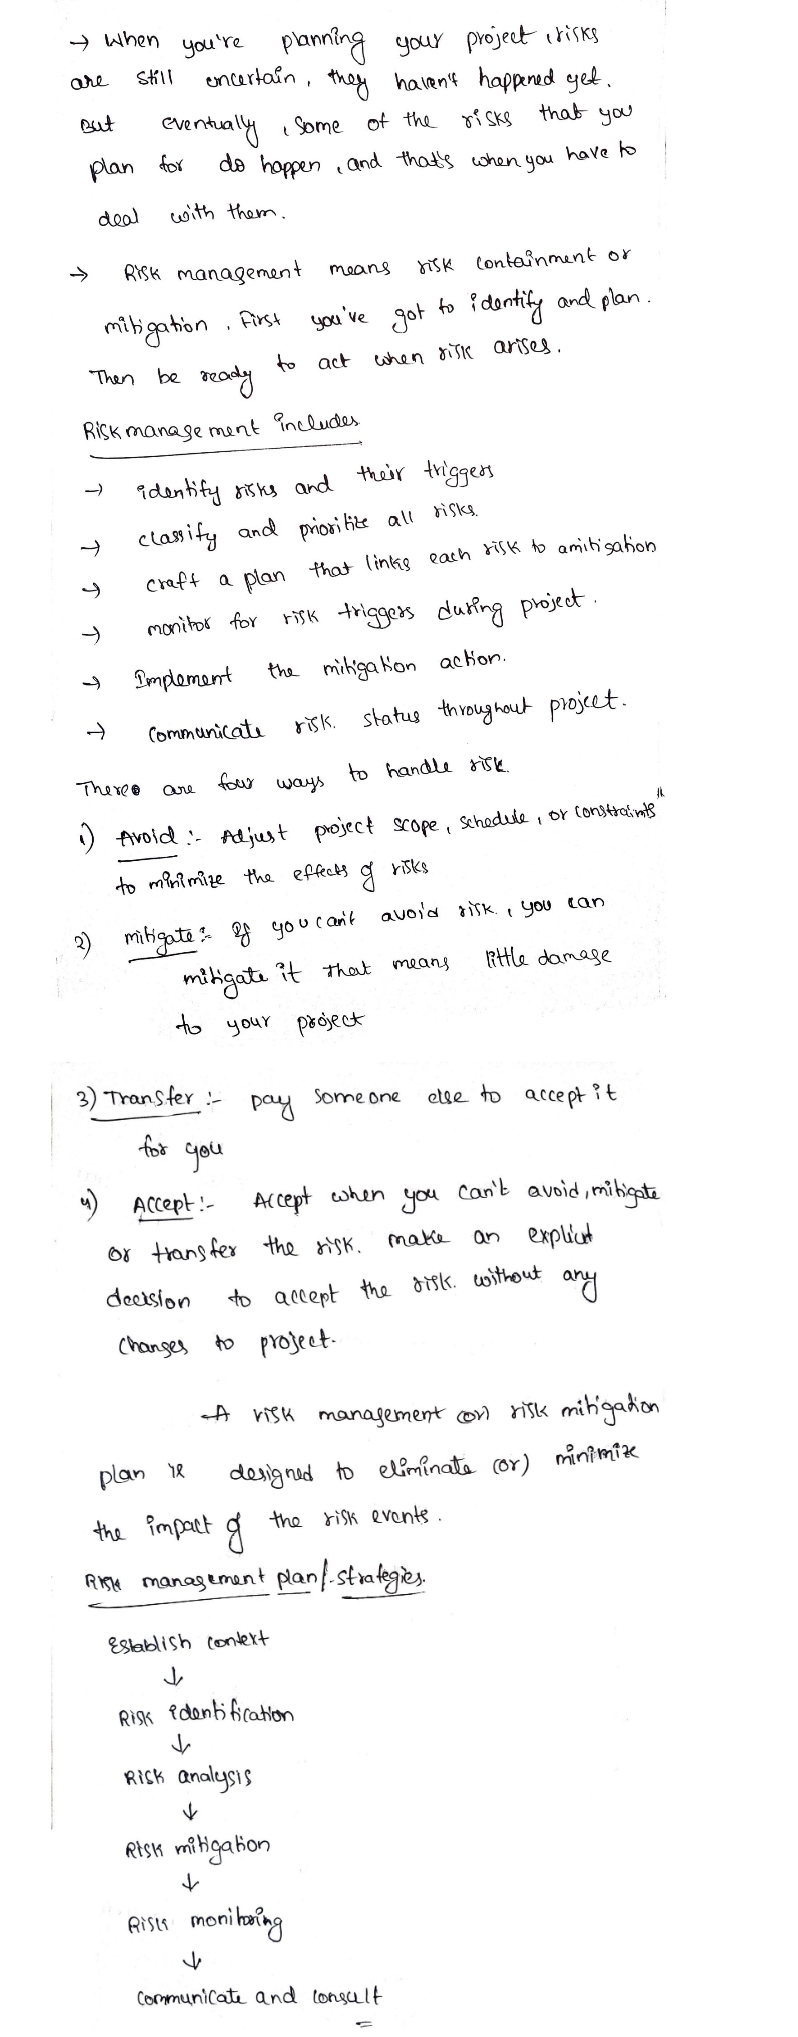 → When you're planning your project, risks
are still uncertain, they haven't happened yet.
But eventually, some of the risks that you
plan for do happen, and that's when you have to
deal with them.
→ Risk management means risk containment or
mitigation. First you've got to identify and plan.
Then be ready to act when risk arises.
Risk management includes
→ identify risks and their triggers
→ classify and prioritize all risks.
→ craft a plan that links each risk to a mitigation
→ monitor for risk triggers during project.
→ Implement the mitigation action.
→ communicate risk. status throughout project.
There are four ways to handle risk.
1) Avoid :- Adjust project scope, schedule, or constraints
to minimize the effects of risks
2) mitigate :- If you can't avoid risk, you can
mitigate it that means little damage
to your project
3) Transfer :- pay someone else to accept it
for you
4) Accept :- Accept when you can't avoid, mitigate
or transfer the risk. make an explicit
decision to accept the risk. without any
changes to project.
A risk management (or) risk mitigation
plan is designed to eliminate (or) minimize
the impact of the risk events.
Risk management plan/-strategies.
Establish context
↓
Risk identification
↓
Risk analysis
↓
Risk mitigation
↓
Risk monitoring
↓
communicate and consult